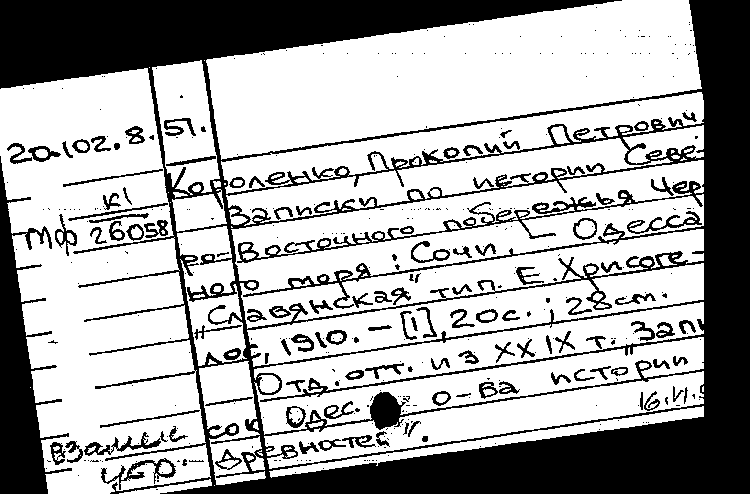 20.102.8.51.
Короленко, Прокопий Петрович.
Записки по истории Севе-
ро-Восточного побережья Чер-
ного моря : Сочи. — Одесса
"Славянская" тип. Е. Хрисоге-
лос, 1910. — [1], 20с. ; 28см.
Отд. отт. из XXIX т. "Запи
сок Одес. о-ва истории
древностей".
К1
Мф 26058
взамен
16.VI.